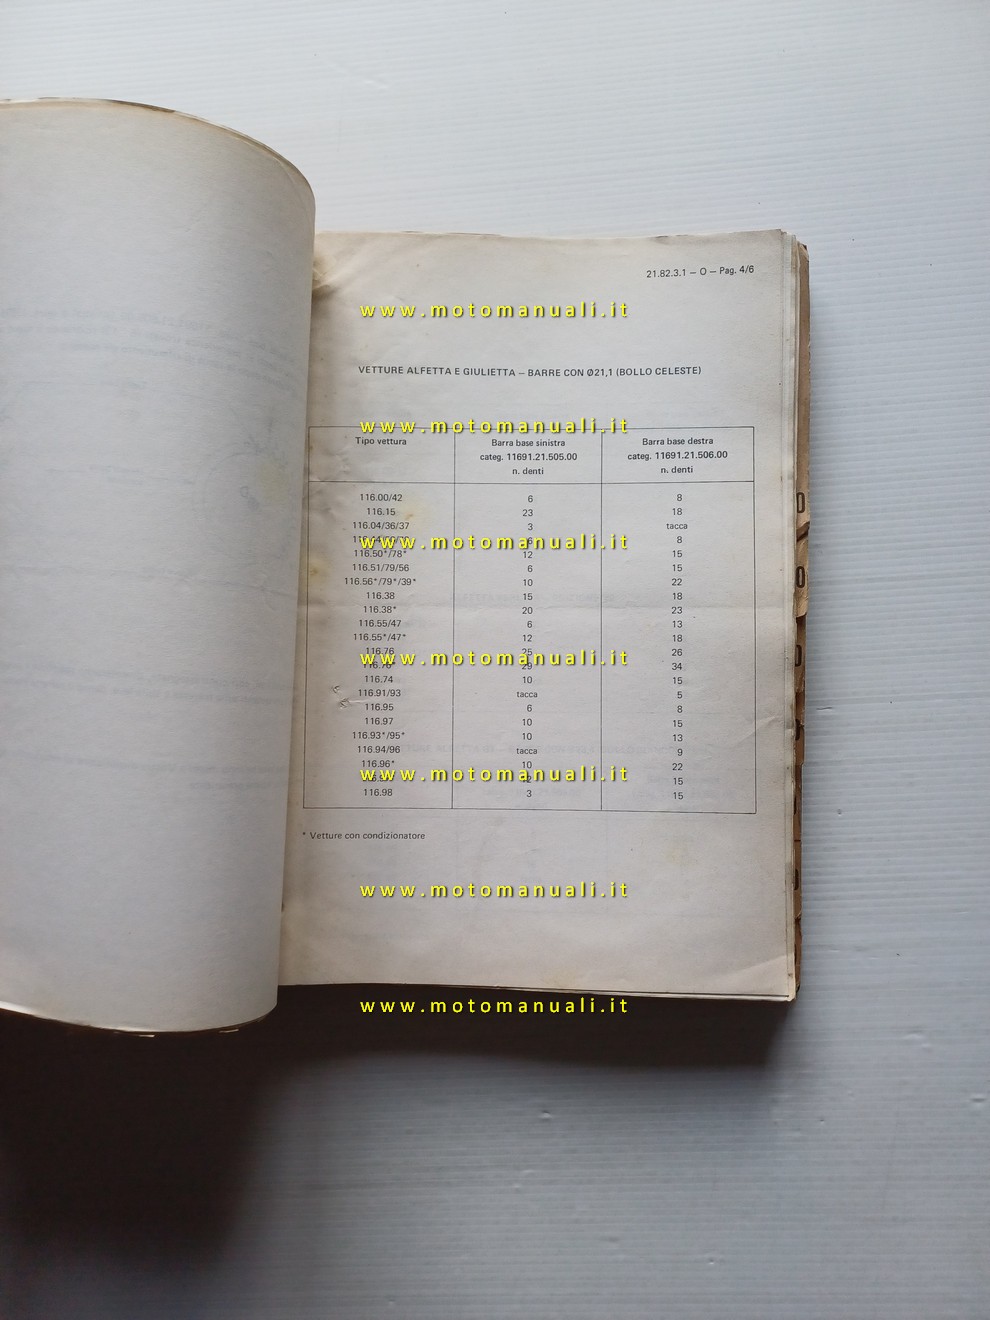 21.82.3.1 — O — Pag. 4/6
www.motomanuali.it
VETTURE ALFETTA E GIULIETTA — BARRE CON Ø21,1 (BOLLO CELESTE)
www.motomanuali.it
Tipo vettura Barra base sinistra categ. 11691.21.505.00 n. denti Barra base destra categ. 11691.21.506.00 n. denti
116.00/42 6 8
116.15 23 18
116.04/36/37 3 tacca
8
www.motomanuali.it
116.50*/78* 12 15
116.51/79/56 6 15
116.56*/79*/39* 10 22
116.38 15 18
116.38* 20 23
116.55/47 6 13
116.55*/47* 12 18
116.76 25 26
www.motomanuali.it
29 34
116.74 10 15
116.91/93 tacca 5
116.95 6 8
116.97 10 15
116.93*/95* 10 13
116.94/96 tacca 9
116.96* 10 22
www.motomanuali.it
15
116.98 3 15
* Vetture con condizionatore
www.motomanuali.it
www.motomanuali.it